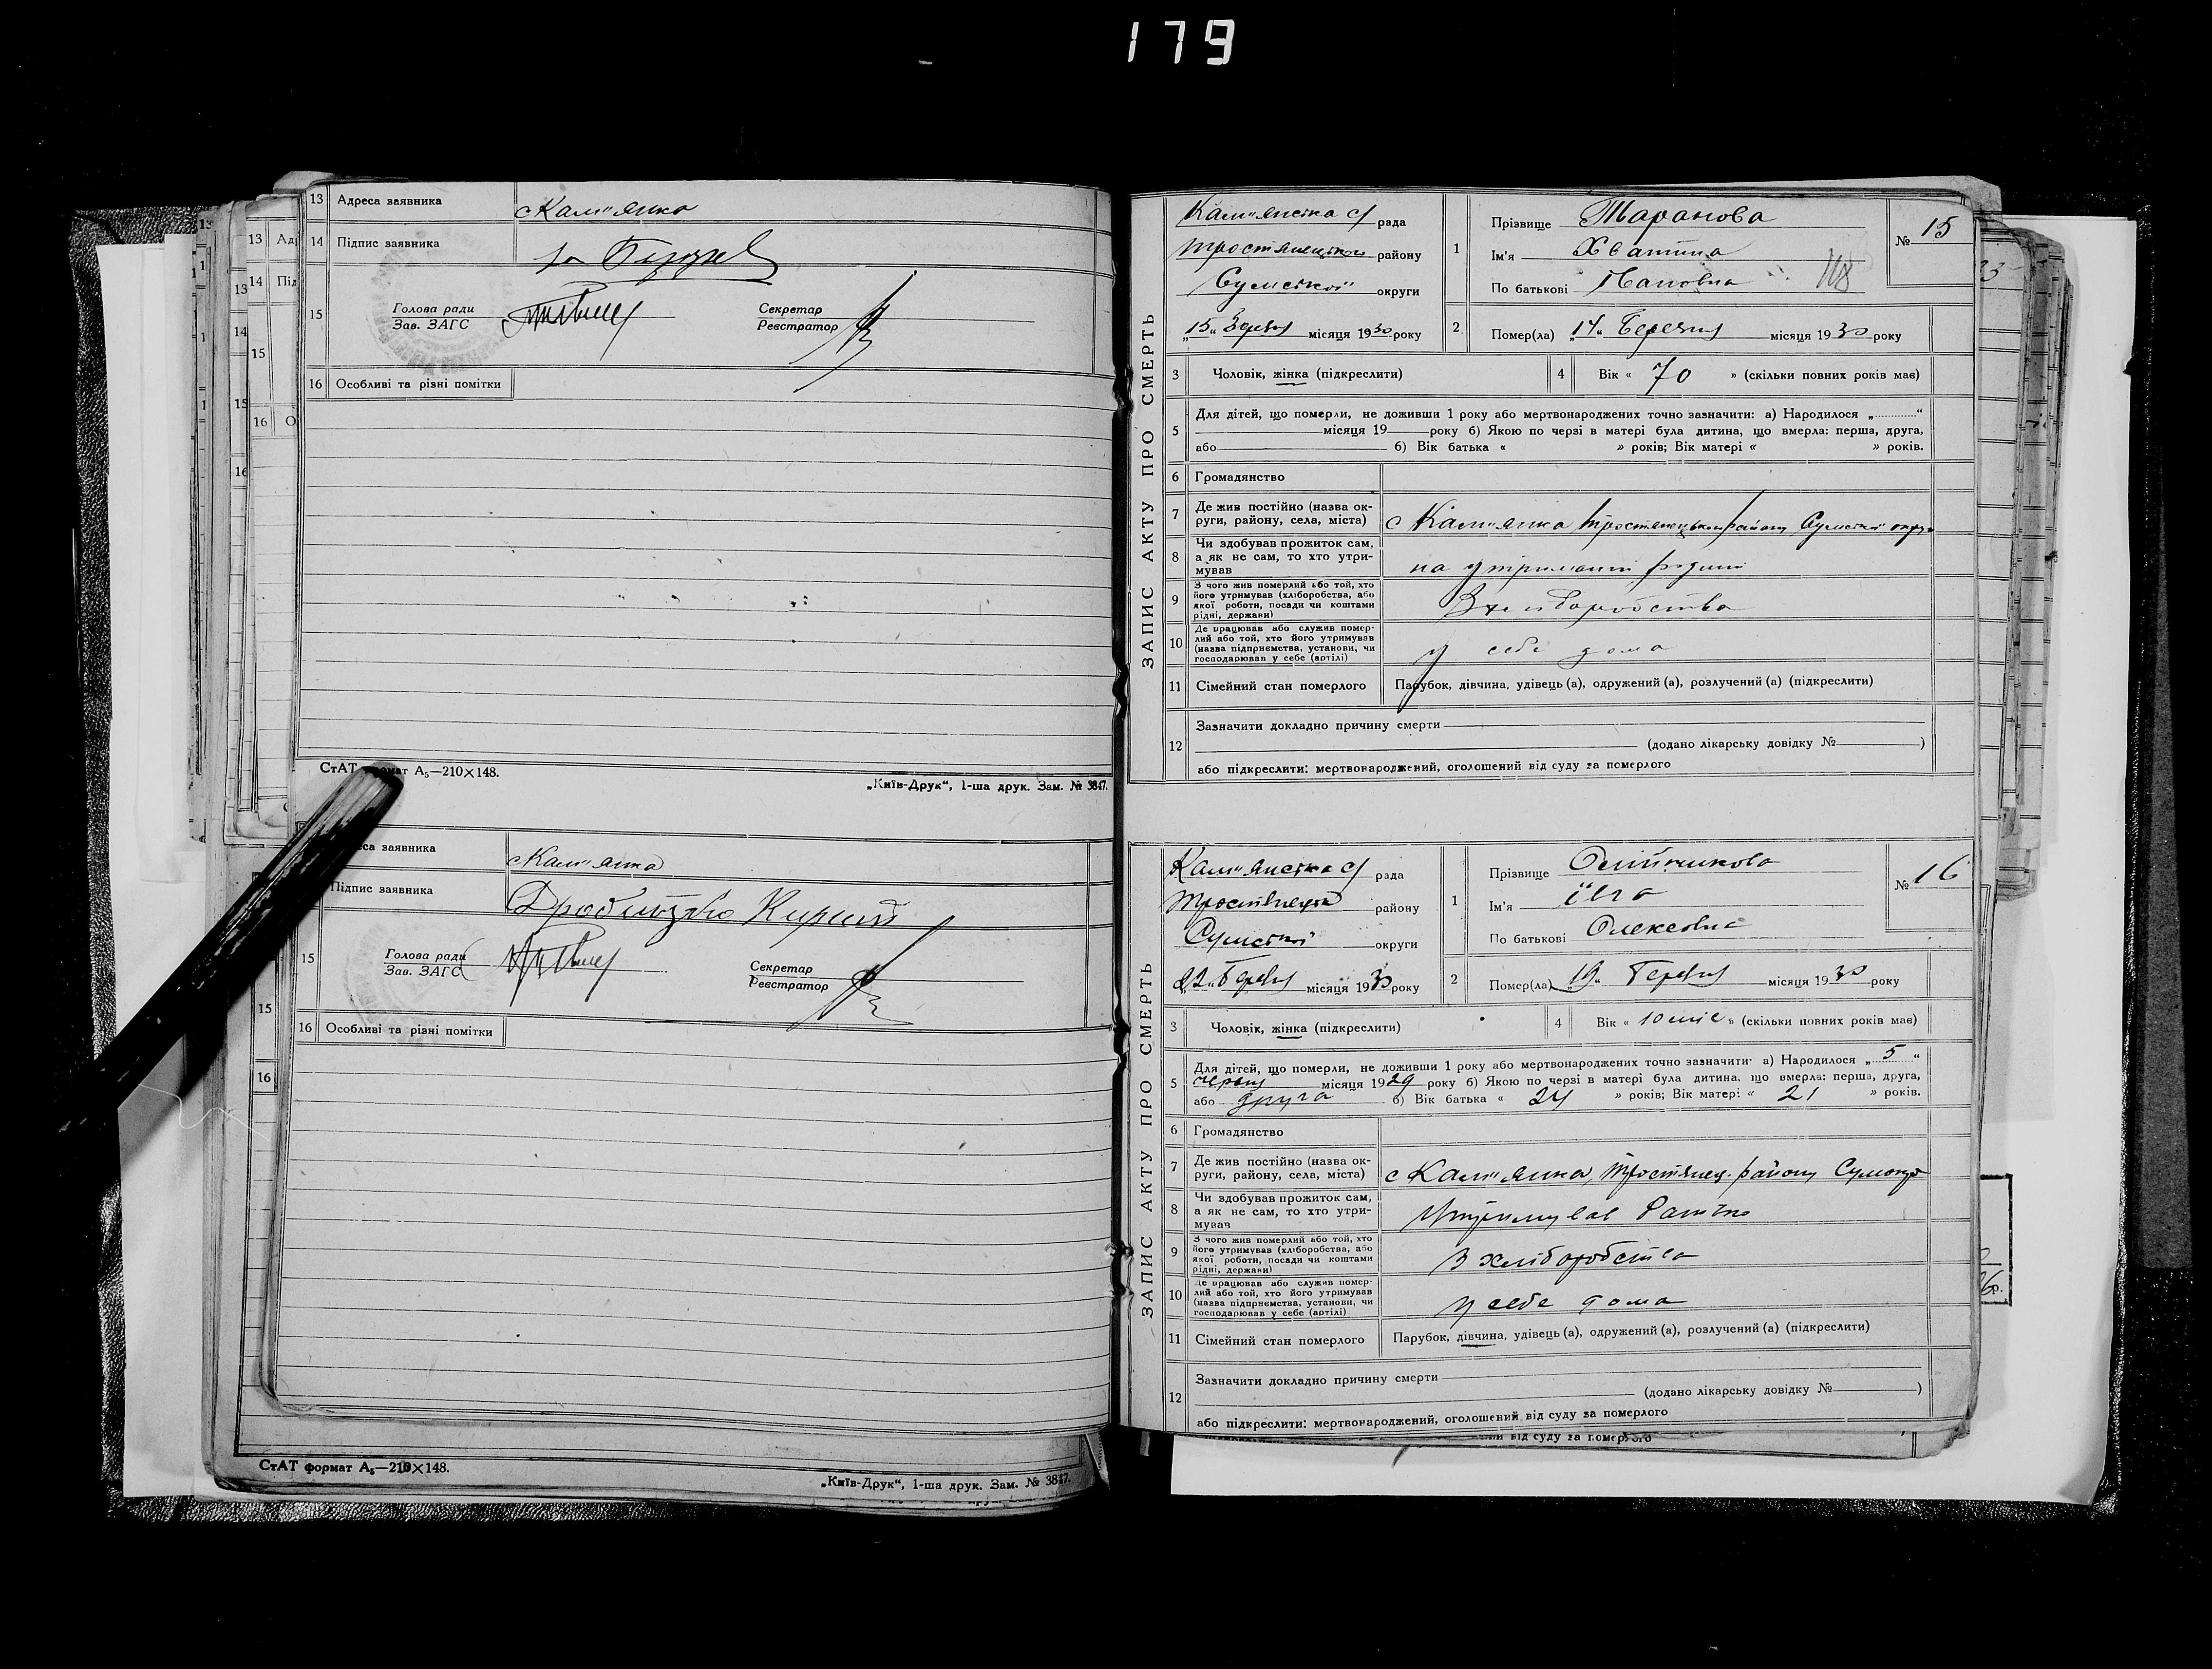 179
13 Адреса заявника с Кам"янка
14 Підпис заявника за
15 Голова ради Секретар
Зав. ЗАГС Реєстратор
16 Особливі та різні помітки
СтАТ формат А₅—210×148.
„Київ-Друк“, 1-ша друк. Зам. № 3847.
заявника с Кам"янка
Підпис заявника Кирило
15 Голова ради Секретар
Зав. ЗАГС Реєстратор
16 Особливі та різні помітки
СтАТ формат А₅—210×148.
„Київ-Друк“, 1-ша друк. Зам. № 3847.
ЗАПИС АКТУ ПРО СМЕРТЬ
Кам"янська с/ рада
Тростянецького району
Сумської округи
„15“ місяця 1930 року
1 Прізвище Таранова
Ім'я
По батькові
№ 15
2 Помер(ла) „14“ Березня місяця 1930 року
3 Чоловік, жінка (підкреслити)
4 Вік « 70 » (скільки повних років має)
5 Для дітей, що померли, не доживши 1 року або мертвонароджених точно зазначити: а) Народилося „..........“
місяця 19 року б) Якою по черзі в матері була дитина, що вмерла: перша, друга,
або б) Вік батька « » років; Вік матері « » років.
6 Громадянство
7 Де жив постійно (назва округи, району, села, міста) с Кам"янка Тростянецького району Сумської округи
8 Чи здобував прожиток сам, а як не сам, то хто утримував на утриманні родини
9 З чого жив померлий або той, хто його утримував (хліборобства, або якої роботи, посади чи коштами рідні, держави) З хліборобства
10 Де працював або служив померлий або той, хто його утримував (назва підприємства, установи, чи господарював у себе (артілі) у себе дома
11 Сімейний стан померлого Парубок, дівчина, удівець (а), одружений (а), розлучений (а) (підкреслити)
12 Зазначити докладно причину смерти
(додано лікарську довідку № )
або підкреслити: мертвонароджений, оголошений від суду за померлого
ЗАПИС АКТУ ПРО СМЕРТЬ
Кам"янська с/ рада
району
Сумської округи
„22“ Березня місяця 1930 року
1 Прізвище Олійникова
Ім'я
По батькові Олексовна
№ 16
2 Помер(ла) „19“ Березня місяця 1930 року
3 Чоловік, жінка (підкреслити)
4 Вік « 10 міс » (скільки повних років має)
5 Для дітей, що померли, не доживши 1 року або мертвонароджених точно зазначити: а) Народилося „ 5 “
червня місяця 1929 року б) Якою по черзі в матері була дитина, що вмерла: перша, друга,
або друга б) Вік батька « 24 » років; Вік матері « 21 » років.
6 Громадянство
7 Де жив постійно (назва округи, району, села, міста) с Кам"янка, Тростянец. району Сумокр
8 Чи здобував прожиток сам, а як не сам, то хто утримував Утримував Батько
9 З чого жив померлий або той, хто його утримував (хліборобства, або якої роботи, посади чи коштами рідні, держави) З хліборобства
10 Де працював або служив померлий або той, хто його утримував (назва підприємства, установи, чи господарював у себе (артілі) у себе дома
11 Сімейний стан померлого Парубок, дівчина, удівець (а), одружений (а), розлучений (а) (підкреслити)
12 Зазначити докладно причину смерти
(додано лікарську довідку № )
або підкреслити: мертвонароджений, оголошений від суду за померлого